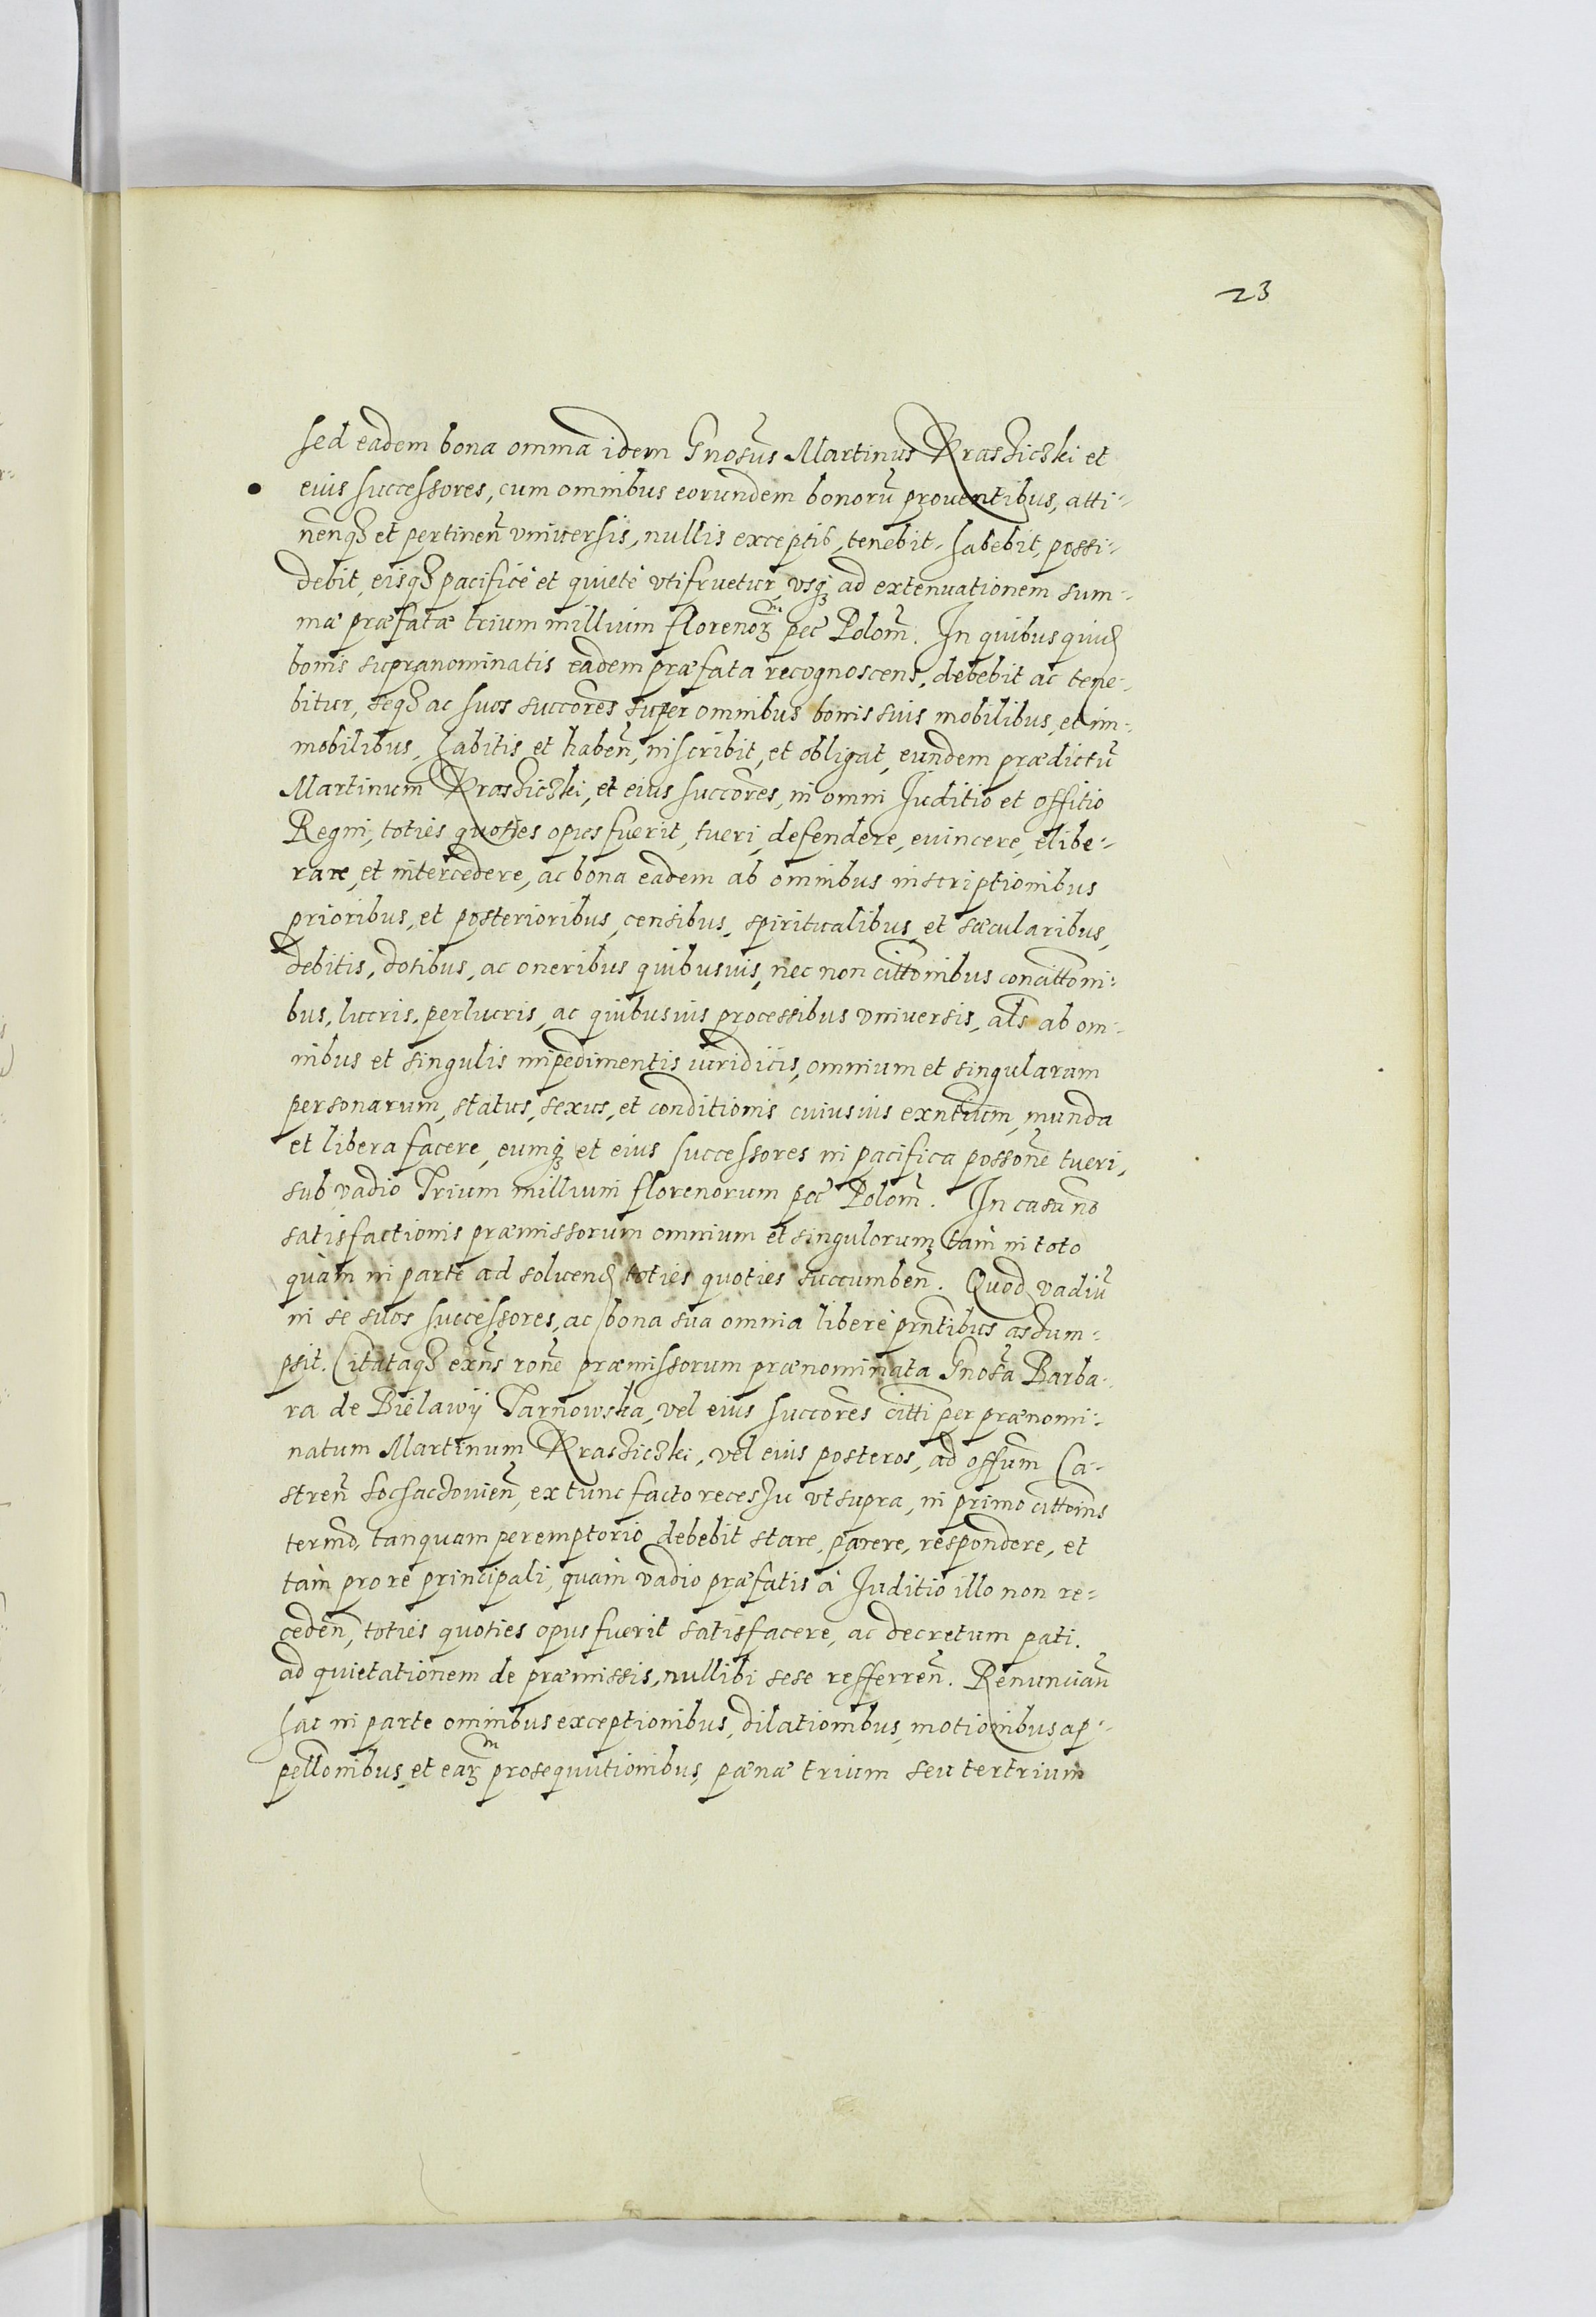 23
sed eadem bona omnia idem Gnosus Martinus Krasziczki et
eius successores, cum omnibus eorundem bonorũ prouentibus, atti-
nenq3 et pertineñ vniuersis, nullis exceptis, tenebit, habebit, possi-
debit, eisq3 pacificè et quietè vtifruetur, vsq3 ad extenuationem sum-
mæ præfatæ trium millium florenorum pec Poloñ. In quibus quid
bonis supranominatis eadem præfata recognoscens, debebit ac tene-
bitur, seq3 ac suos succores super omnibus bonis suis mobilibus, et im-
mobilibus, habitis et habeñ, inscribit, et obligat, eundem prædictũ
Martinum Krasziczki, et eius succores, in omni Iuditio et offitio
Regni, toties quoties opus fuerit, tueri, defendere, euincere, elibe-
rare, et intercedere, ac bona eadem ab omnibus inscriptionibus
prioribus, et posterioribus, censibus, spiritualibus, et sæcularibus,
debitis, dotibus, ac oneribus quibusuis, nec non cittonibus concittoni-
bus, lucris, perlucris, ac quibusuis processibus vniuersis, als ab om-
nibus et singulis impedimentis iuridicis, omnium et singularum
personarum, status, sexus, et conditionis cuiusuis exntium, munda
et libera facere, eumq3 et eius successores in pacifica possone tueri,
sub vadio Trium millium florenorum pec Poloñ. In casu no
satisfactionis præmissorum omnium et singulorum, tam in toto
quàm in parte ad soluend toties quoties succumbeñ. Quod vadiũ
in se suos successores, ac bona sua omnia liberè prntibus assum-
psit. Citataq3 exns rone præmissorum prænominata Gnosa Barba-
ra de Bielawÿ Tarnowska, vel eius succores citti per prænomi-
natum Martinum Krasziczki, vel eius posteros, ad offum Ca-
streñ Sochaczouieñ, ex tunc facto recessu vt supra, in primo cittonis
termo, tanquam peremptorio debebit stare, parere, respondere, et
tam pro re principali, quàm vadio præfatis à Iuditio illo non re-
cedeñ, toties quoties opus fuerit satisfacere, ac decretum pati.
ad quietationem de præmissis, nullibi sese refferreñ. Renuncian̄
hac in parte omnibus exceptionibus, dilationibus, motionibus ap-
pellonibus, et earum prosequutionibus, pænæ trium seu tertrium